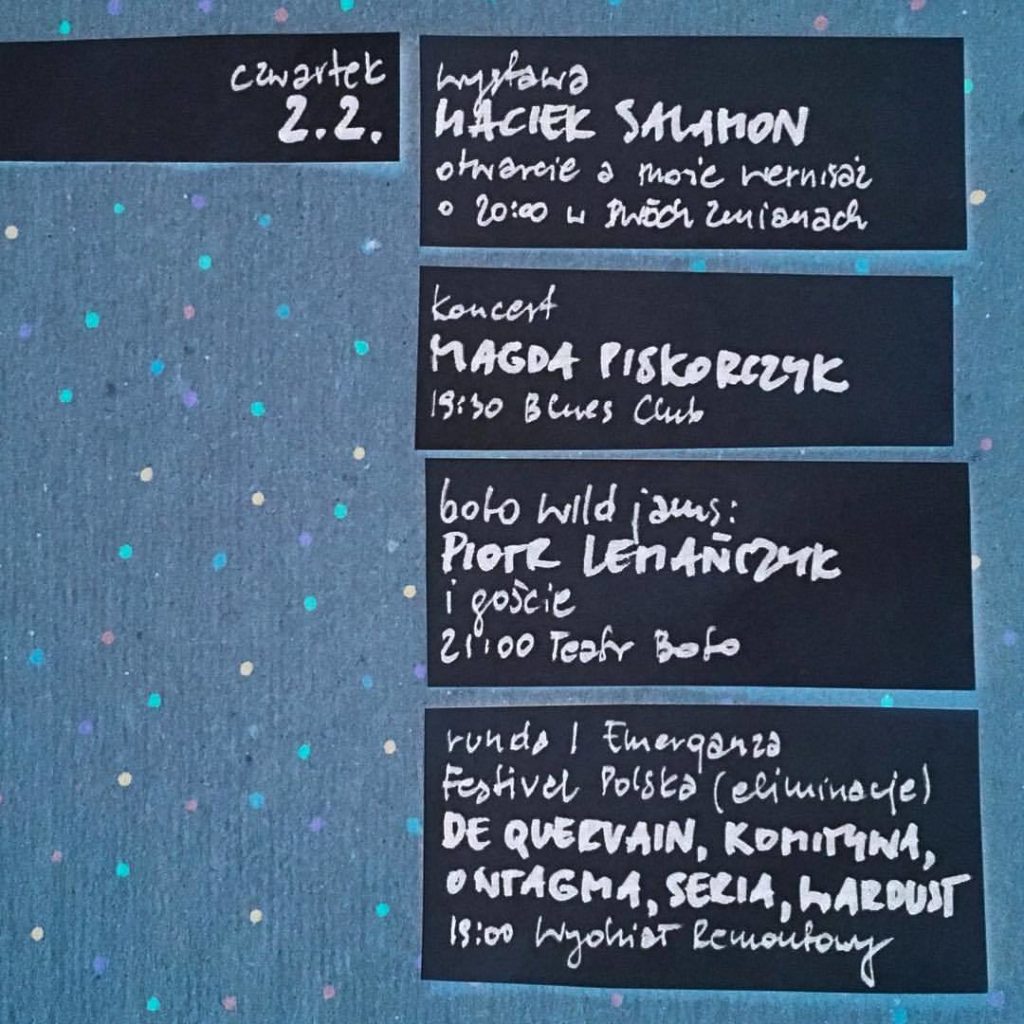 czwartek
2.2.
wystawa
MACIEK SALAMON
otwarcie a może wernisaż
o 20:00 w Dwóch Zmianach
koncert
MAGDA PISKORCZYK
19:30 Blues Club
boto wild jams:
PIOTR LEMAŃCZYK
i goście
21:00 Teatr Boto
runda 1 Emerganza
Festivel Polska (eliminacje)
DE QUERVAIN, KOMITYWA,
ONTAGMA, SERIA, WARDUST
19:00 Wydział Remontowy